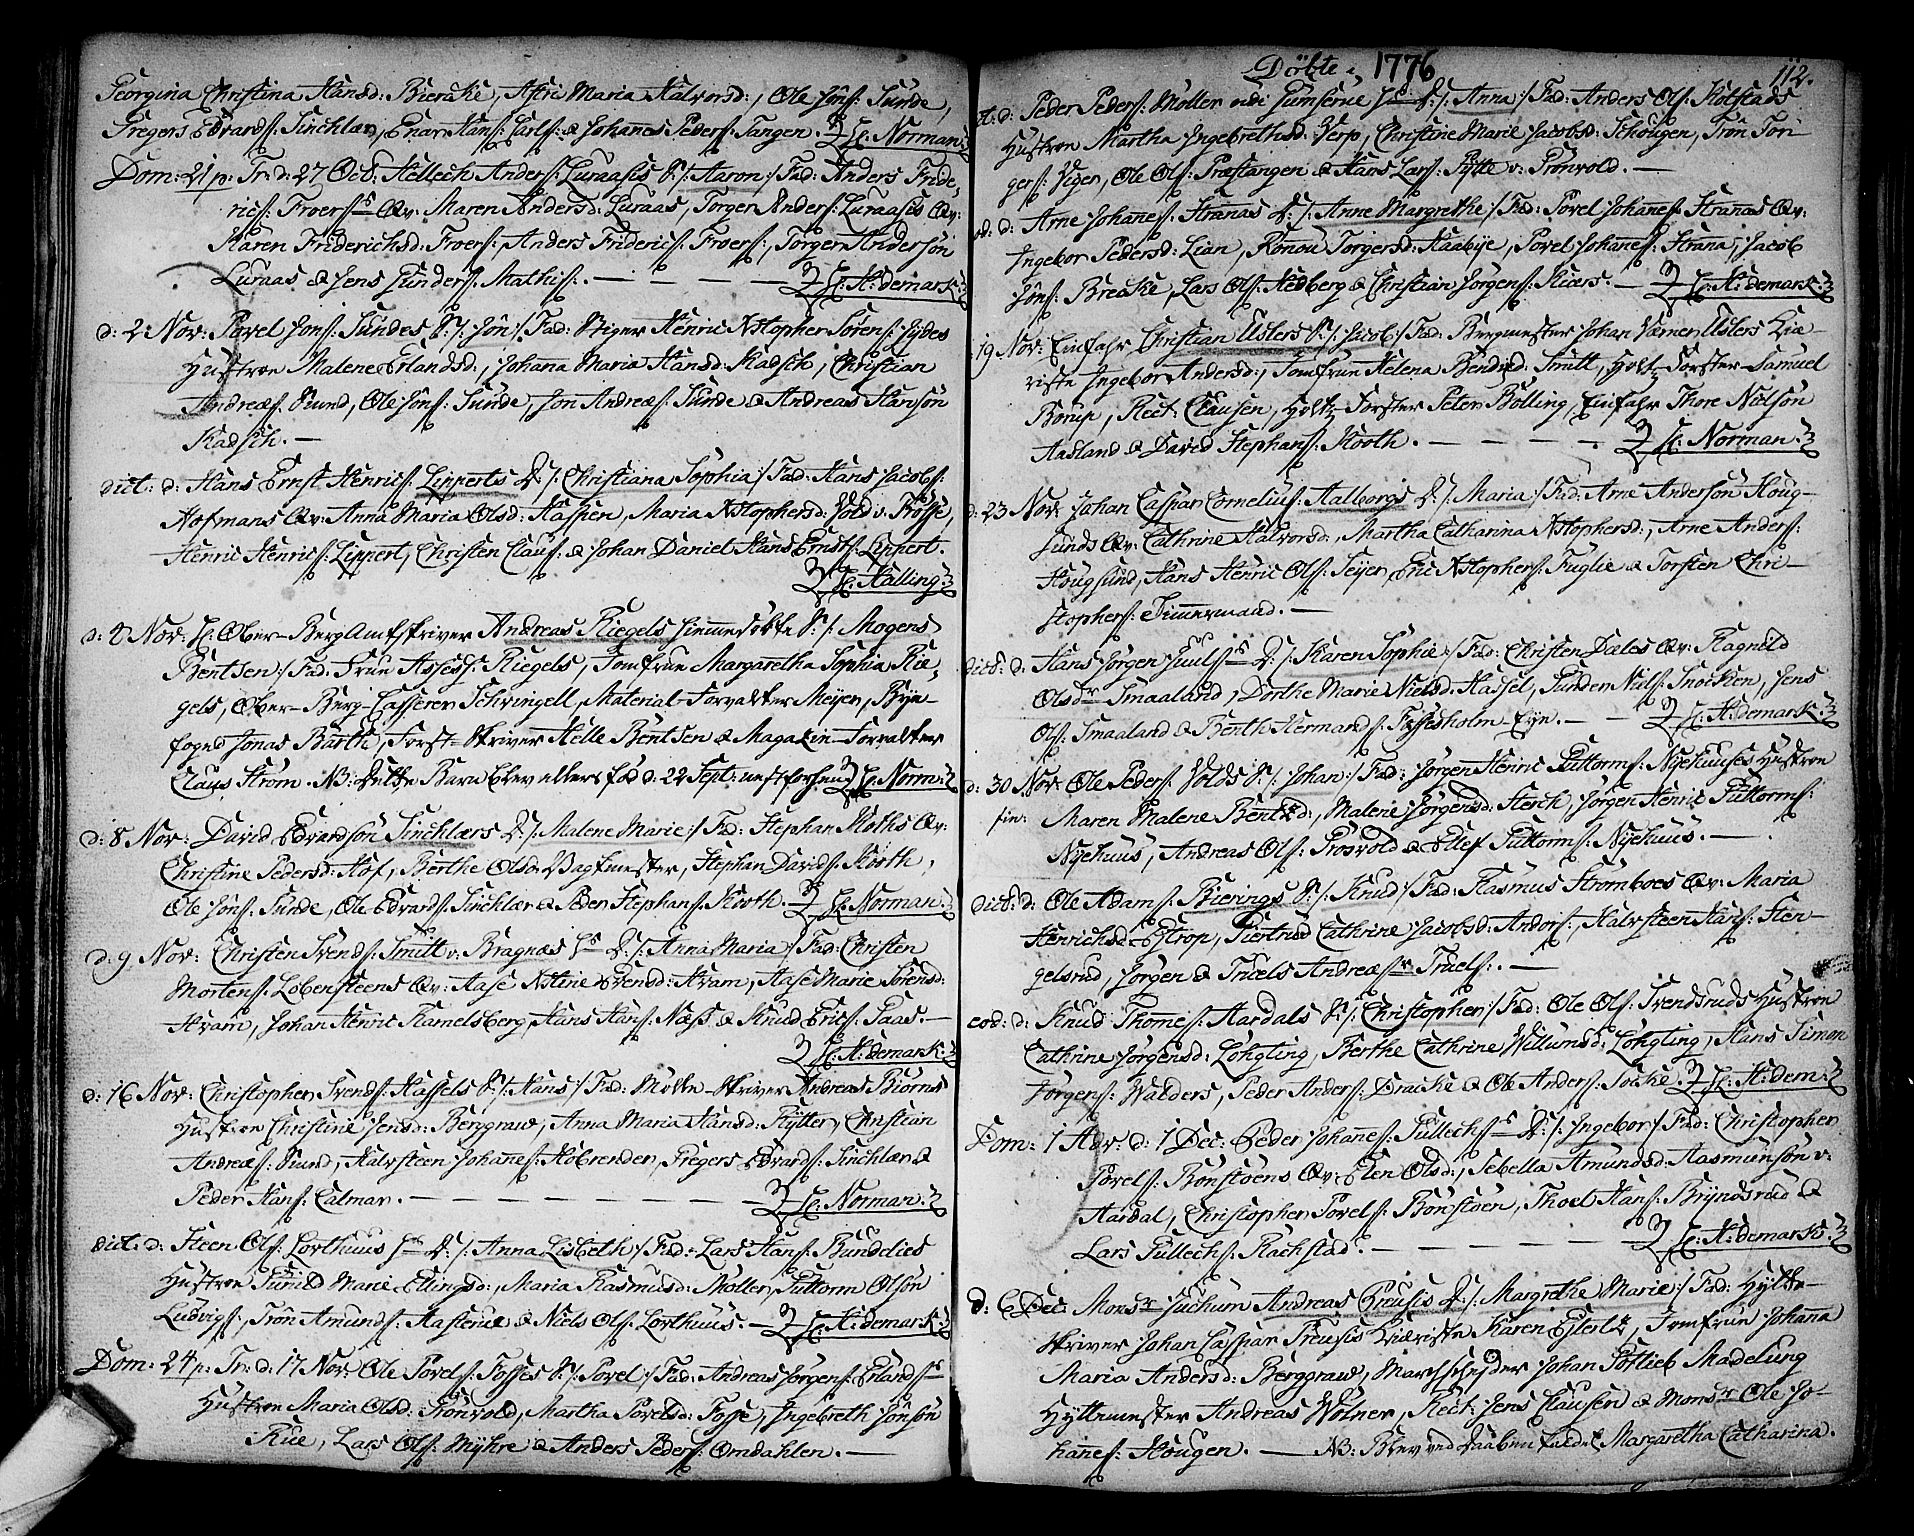 Georgina Christina Hansd: Biercke, Astri Maria Halvorsd:, Ole Jöns: Sunde,
Gregers Edvards: Sinchlær, Enar Hans: Carls: & Johannes Peders: Tangen. Hr: Norman.
Dom: 21 p: Tr: d: 27 Oct: Hellech Anders: Luraasis S:/: Aaron:/ Fad: Anders Fride-
rics: Froers: Qv: Maren Andersd: Luraas, Torger Anders: Luraasis Qv:
Karen Friderichsd: Froers: Anders Friderics: Froers:, Torger Andersön
Luraas & Jens Gunders: Mathis:. Hr: H: demark.
d: 2 Nov: Povel Jöns: Sundes S:/: Jön:/ Fad: Biger Henric Xstopher Sörens: Gydes
Hustroe Malene Erlandsd:, Johanna Maria Hansd: Radsch, Christian
Andreæs: Svend, Ole Jöns: Sunde, Jon Andreæs: Sunde & Andreas Hansön
Radsch.
dict: d: Hans Ernst Henrics: Lipperts D:/: Christiana Sophia:/ Fad: Hans Jacobs:
Hofmans Qv: Anna Maria Olsd: Haspen, Maria Xstophersd: Vold v: Fosse,
Henric Henrics: Lippert, Christen Claus: & Johan Daniel Hans Ernsts: Lippert.
Hr: Halling.
d: 4 Nov: Hr: Ober-Berg Amtskriver Andreas Riegels hiemmedöbte S:/: Mogens
Bentsen:/ Fad: Frue Assess: Riegels, Jomfrue Margaretha Sophia Rie-
gels, Ober-Berg-Casserer Schvingell, Material-Forvalter Meyer, Bye-
foged Jonas Barth, Forst-Skriver Helle Bentsen & Magazin-Forvalter
Claus Ström. NB: Dette Barn blev ellers fød d: 22 Sept: nestforh: Hr: Norm:
d: 8 Nov: David Edvardsön Sinchlærs D:/: Malene Marie:/ Fad: Stephan Koths Qv:
Christine Pedersd: Hof, Berthe Olsd: Vagtmester, Stephan Davids: Kooth,
Ole Jöns: Sunde, Ole Edvards: Sinchlær & Peder Stephans: Kooth. Hr: Norman.
d: 9 Nov: Christen Svends: Smitt v: Bragnæs D:/: Anna Maria:/ Fad: Christen
Mortens: Lobensteens Qv: Aase Xstine Svensd: Hram, Aase Marie Sörensd:
Hram, Johan Henric Ramelsberg, Hans Hans: Næss & Knud Erics: Faas.
Hr: H: demark.
d: 16 Nov: Christopher Svends: Hassels S:/: Hans:/ Fad: Mölle-Skriver Andreas Biörns
Hustroe Christine Jensd: Berggrav, Anna Maria Hansd: Rytter, Christian
Andreæs: Svend, Halvsteen Johanes: Kobrender, Gregers Edvards: Sinchlær &
Peder Hans: Calmar. Hr: Norman.
dict: d: Steen Ols: Lorthuus D:/: Anna Lisbeth:/ Fad: Lars Hans: Bundelies
Hustroe Gunild Marie Ellingsd:, Maria Rasmusd: Möller, Guttorm Olsön
Ludvigs:, Trön Amunds: Hasterue & Niels Ols: Lorthuus. Hr: H: demark.
Dom: 24 p: Tr: d: 17 Nov: Ole Povels: Fosses S:/: Povel:/ Fad: Andreas Jörgens: Erlands:
Hustroe Maria Olsd: Grönvold, Martha Povelsd: Fosse, Ingebreth Jönsön
Rue, Lars Ols: Myhre & Anders Peders: Omdahlen.
Döbte 1776 112.
ot: d: Peder Peders: Möller D:/: Anna:/ Fad: Anders Ols: Kolstads
Hustroe Martha Ingebrethsd: Verp, Christine Marie Jacobsd: Schougen, Trön Tor-
gers: Viger, Ole Ols: Præstangen & Hans Lars: Pytte v: Grönvold.
d: Arne Johanes: Stranas D:/: Anne Margrethe:/ Fad: Povel Johanes: Stranas Qv:
Ingebor Pedersd: Lian, Ronou Torgersd: Haabye, Povel Johanes: Strana, Jacob
Jöns: Brecke, Lars Ols: Hedberg & Christian Jörgens: Kiærs. Hr: H: demark.
19 Nov: Einfahr Christian Uslers S:/: Jacob:/ Fad: Bergmester Johan Værner Uslers Kiæ-
riste Ingebor Andersd:, Jomfrue Helena Bendixd: Smitt, Holtz-Forster Samuel
Borup, Rect: Clausen, Holtz-Forster Peter Bölling, Einfahr Thore Nielsön
Aasland & David Stephans: Kooth. Hr: Norman.
d: 23 Nov: Johan Caspar Cornelius: Aalborgs D:/: Maria:/ Fad: Arne Andersön Houg-
sunds Qv: Cathrine Halvorsd:, Martha Catharina Xstophersd:, Arne Anders:
Hougsund, Hans Henric Ols: Seyer, Eric Xstophers: Fuglie & Torsten Chri-
stophers: Timmermand.
dict: d: Hans Jörgen Juuls: D:/: Karen Sophie:/ Fad: Christen Dæles Qv: Ragnild
Olsdr: Smaaland, Dorthe Marie Nielsd: Hassel, Gunder Niels: Snocken, Jens
Ols: Smaaland & Benth Hermands: Fossesholm-Eye. Hr: H: demark.
d: 30 Nov: Ole Peders: Volds S:/: Johan:/ Fad: Jörgen Henric Guttorms: Nyehuuses Hustroe
Maren Malene Bentzd:, Malene Jörgensd: Sterch, Jörgen Henric Guttorms:
Nyehuus, Andreas Ols: Grosvold & Ellef Guttorms: Nyehuus.
dict: d: Ole Adams: Bierings S:/: Knud:/ Fad: Rasmus Strömboes Qv: Maria
Henrichsd: Estrop, Giertrud Cathrine Jacobsd: Andors:, Halvsteen Hans: Sten-
gelsrud, Jörgen & Truels Andreæs: Truels:.
eod: d: Knud Thomes: Aardals S:/: Christopher:/ Fad: Ole Ols: Svendsruds Hustroe
Cathrine Jörgensd: Löhgting, Berthe Cathrine Willumsd: Löhgting, Hans Simon
Jörgens: Walders, Peder Anders: Dracke & Ole Anders: Socke. Hr: H: dem:
Dom: 1 Adv: d: 1 Dec: Peder Johanes: Gullechs: D:/: Ingebor:/ Fad: Christopher
Povels: Bönstöens Qv: Elen Olsd:, Sebella Amundsd: Aasmunsön v:
Aardal, Christopher Povels: Bönstöen, Thoel Hans: Bryndsrud &
Lars Gullechs: Rachstad. Hr: H: demark.
d: 6 Dec: Monsr Juchum Andreas Preusis D:/: Margrethe Marie:/ Fad: Hytte-
skriver Johan Caspar Preusis Kiæriste Karen Eylertz, Jomfrue Johanna
Maria Andersd: Berggrav, Marchscheyder Johan Gotlieb Madelung
Hyttemester Andreas Wolner, Rect: Jens Clausen & Monsr Ole Jo-
hanes: Hougen. NB: Blev ved Daaben kaldet Margaretha Catharina.